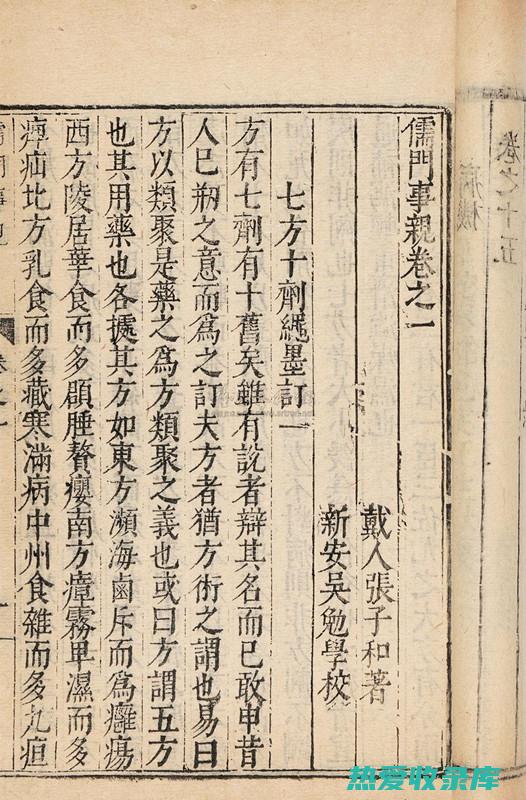 卷之十五
病機
儒門事親卷之一
戴人張子和著
新安吳勉學校
七方十劑繩墨訂一
方有七劑有十舊矣雖有說者辯其名而已敢申昔
人已㓨之意而為之訂夫方者猶方術之謂也易曰
方以類聚是藥之為方類聚之義也或曰方謂五方
也其用藥也各據其方如東方瀕海鹵斥而為癰瘍
西方陵居華食而多頵腄贅癭南方瘴霧卑濕而多
痺疝北方乳食而多藏寒滿病中州食雜而多九疸
热爱收录库